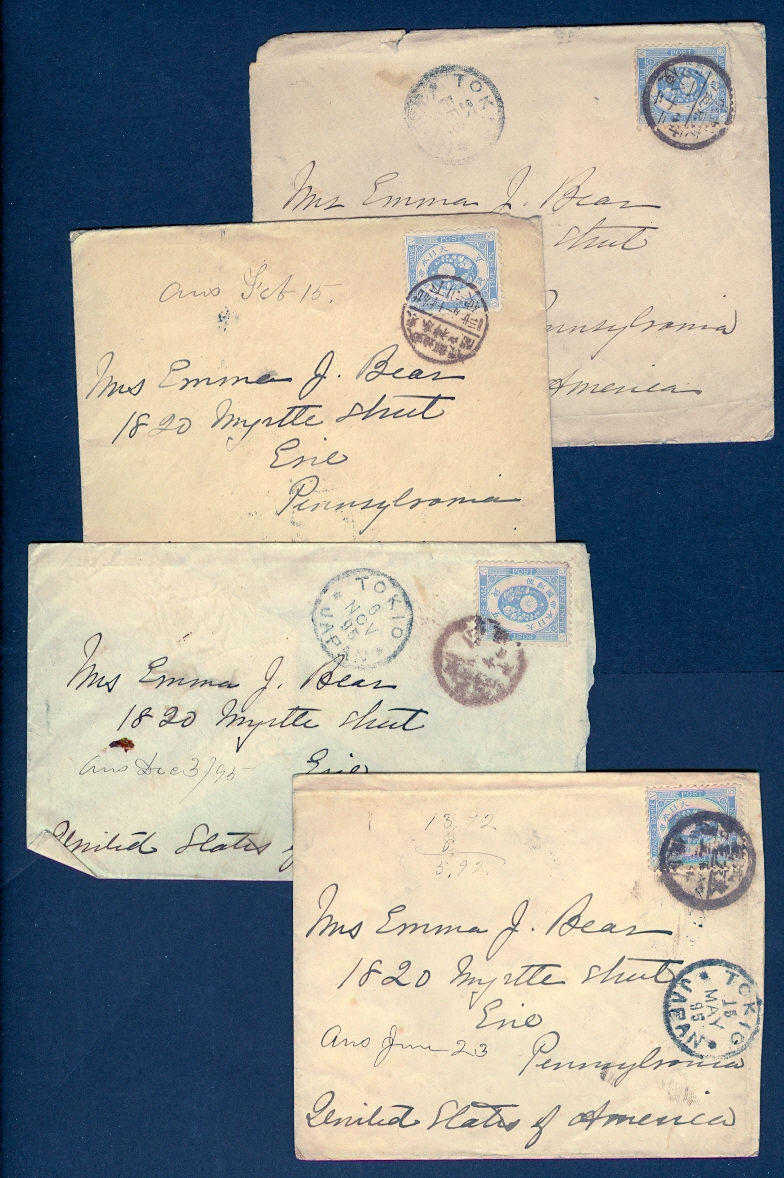 TOKI
Mrs Emma J. Bear
Street
Pennsylvania
America
POST
ans Feb 15.
Mrs Emma J. Bear
1820 Myrtle Street
Erie
Pennsylvania
POST
TOKIO
6
NOV
95
JAPAN
Mrs Emma J. Bear
1820 Myrtle Street
ans Dec 3/95
Erie
United States of
POST
13.92
8
5.92.
Mrs Emma J. Bear
1820 Myrtle Street
Erie
ans June 23
Pennsylvania
TOKIO
15
MAY
95
JAPAN
United States of America